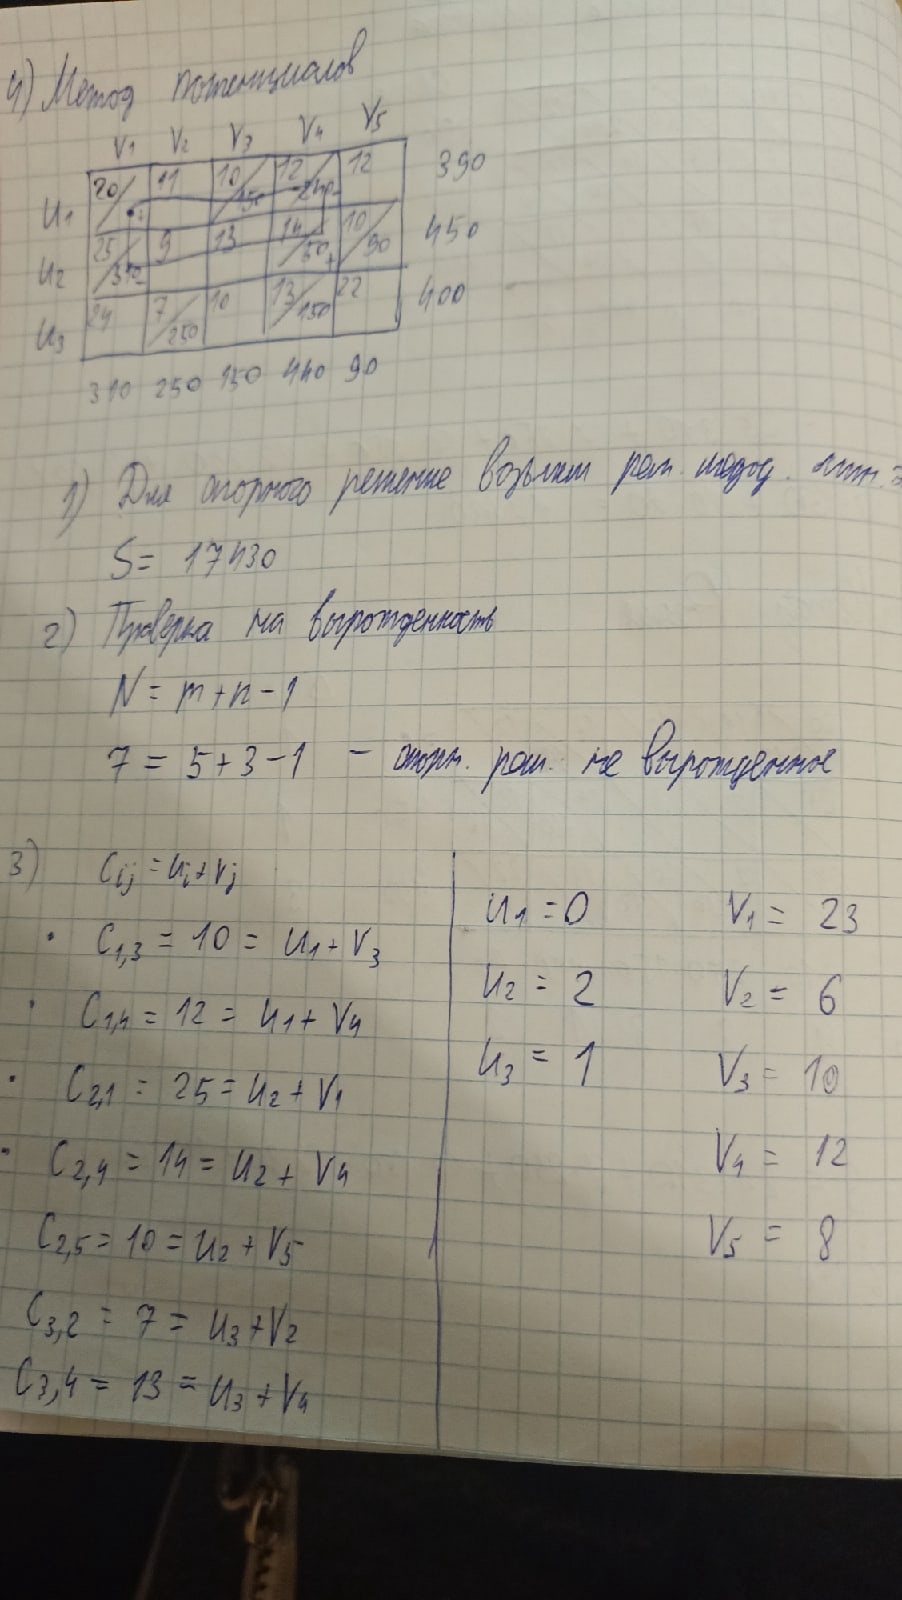 4) Метод потенциалов
V1 V2 V3 V4 V5
U1 20 11 10/150 12/240 12 390
U2 25/310 9 13 14/50 10/90 450
U3 24 7/250 10 13/150 22 400
310 250 150 440 90
1) Для опорного решение возьмем реш.
S = 17430
2) Проверка на вырожденность
N = m + n - 1
7 = 5 + 3 - 1 - опорн. реш. не вырожденное
3) Cij = Ui + Vj
C1,3 = 10 = U1 + V3
C1,4 = 12 = U1 + V4
C2,1 = 25 = U2 + V1
C2,4 = 14 = U2 + V4
C2,5 = 10 = U2 + V5
C3,2 = 7 = U3 + V2
C3,4 = 13 = U3 + V4
U1 = 0
U2 = 2
U3 = 1
V1 = 23
V2 = 6
V3 = 10
V4 = 12
V5 = 8